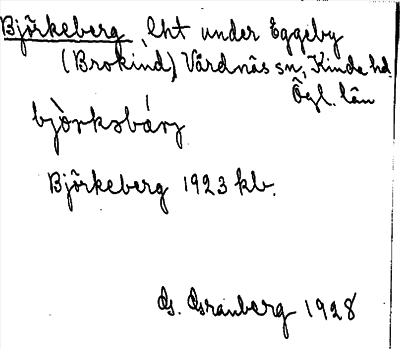 Björkeberg lht under Eggeby
(Brokind) Vårdnäs sn, Kinda hd.
Ögl. län
bjò̀rksbárj
Björkeberg 1923 kb.
G. Granberg 1928